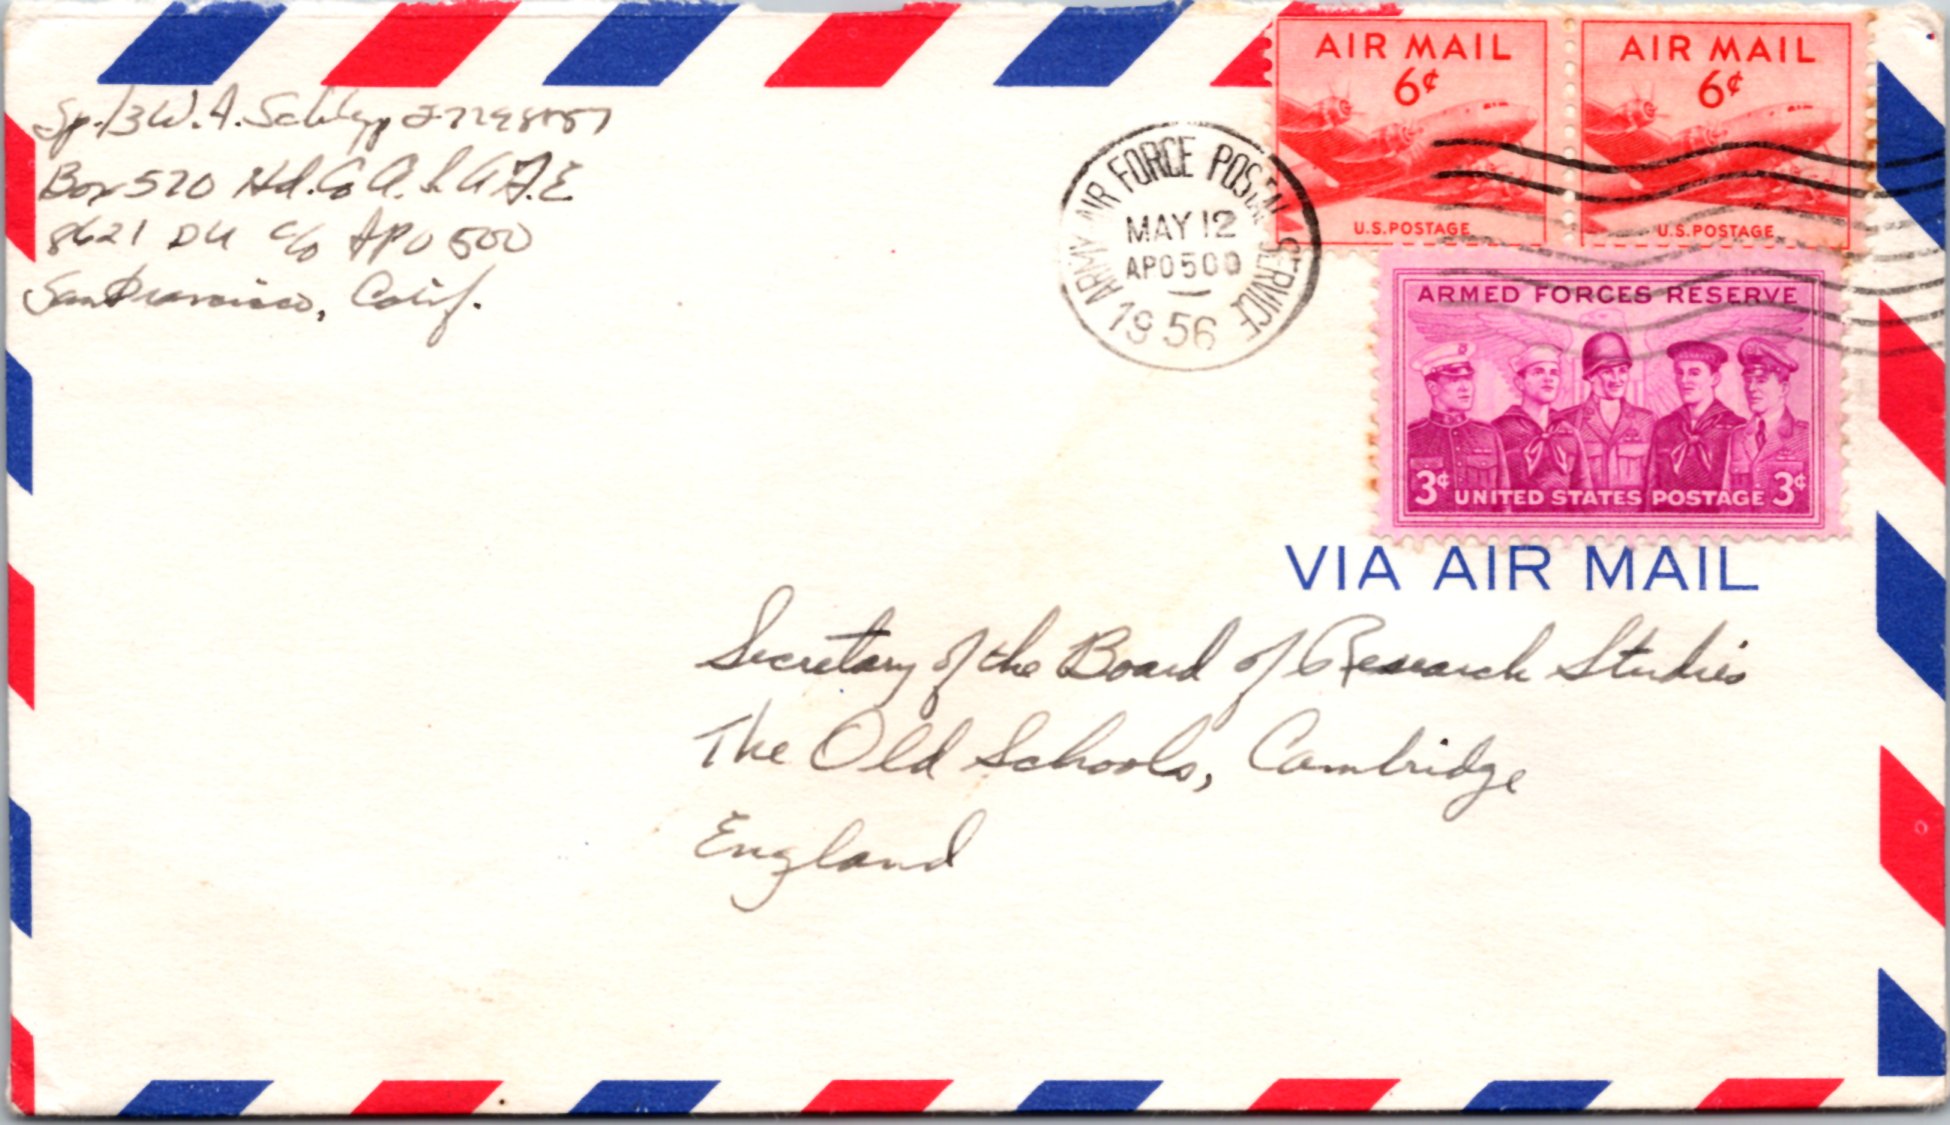 Sp. 3 W. A.
Box 570 Hd. Co A. S. A. F. E
8621 DU c/o APO 500
San Francisco, Calif.
ARMY AIR FORCE POSTAL SERVICE
MAY 12
APO 500
1956
AIR MAIL
6¢
U.S. POSTAGE
AIR MAIL
6¢
U.S. POSTAGE
ARMED FORCES RESERVE
3¢ UNITED STATES POSTAGE 3¢
VIA AIR MAIL
Secretary of the Board of Research Studies
The Old Schools, Cambridge
England